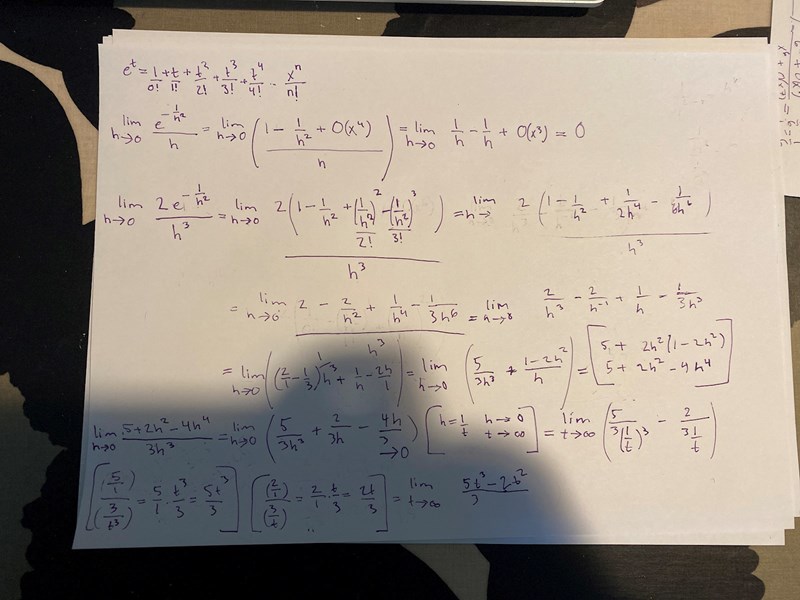 e^t = 1/0! + t/1! + t²/2! + t³/3! + t⁴/4! .. xⁿ/n!
lim h→0 e^(-1/h²)/h = lim h→0 ((1 - 1/h² + O(x⁴))/h) = lim h→0 1/h - 1/h + O(x³) = 0
lim h→0 2e^(-1/h²)/h³ = lim h→0 2(1 - 1/h² + (1/h²)²/2! - (1/h²)³/3!)/h³ = lim h→ 2(1 - 1/h² + 1/2h⁴ - 1/6h⁶)/h³
= lim h→0 (2 - 2/h² + 1/h⁴ - 1/3h⁶)/h³ = lim h→0 2/h³ - 2/h⁻¹ + 1/h - 1/3h³
= lim h→0 ((2/1 - 1/3) 1/h³ + 1/h - 2h/1) = lim h→0 (5/3h³ + (1-2h²)/h) = [5 + 2h²(1-2h²)
5 + 2h² - 4h⁴]
lim h→0 (5+2h²-4h⁴)/3h³ = lim h→0 (5/3h³ + 2/3h - 4h/3 →0) [h=1/t h→0 t→∞] = lim t→∞ (5/3(1/t)³ - 2/3 1/t)
[(5/1)/(3/t³) = 5/1 · t³/3 = 5t³/3] [(2/1)/(3/t) = 2/1 · t/3 = 2t/3] = lim t→∞ (5t³-2t²)/3